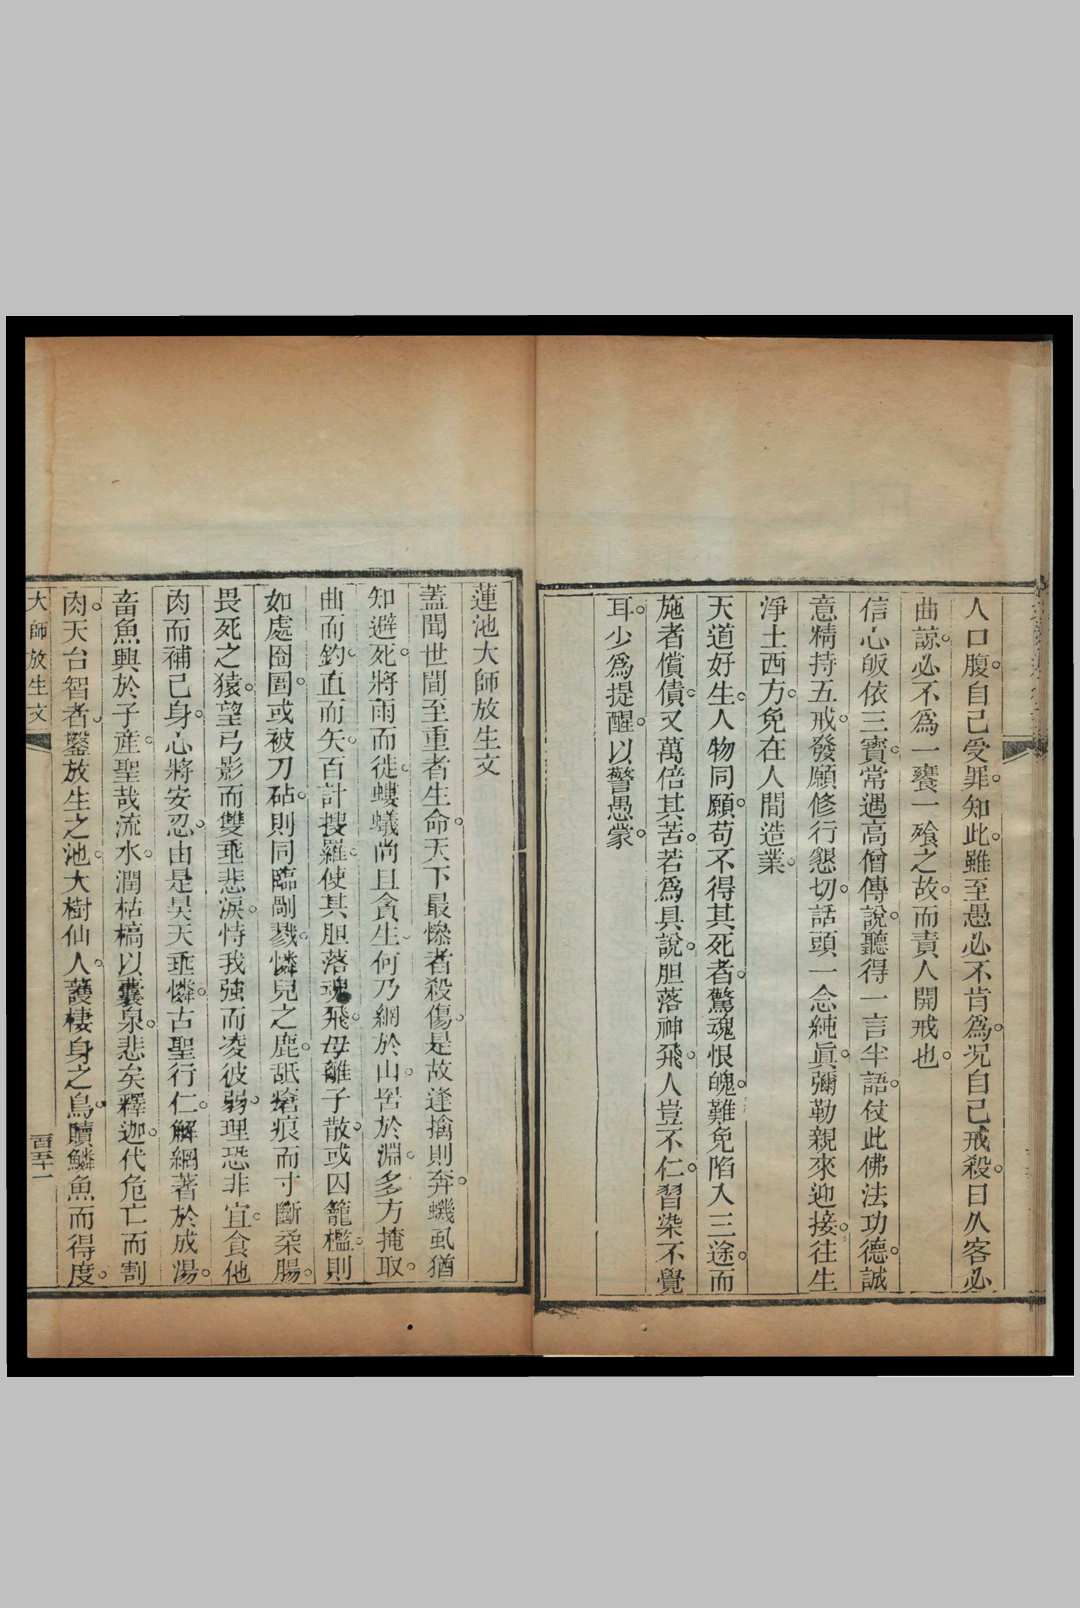 人口腹。自己受罪。知此。雖至愚必不肯爲。況自己戒殺。曰久客必
曲諒。必不爲一饔一飱之故。而責人開戒也。
信心皈依三寶。常遇高僧傳說。聽得一言半語。仗此佛法功德。誠
意精持五戒。發願修行。懇切話頭。一念純眞。彌勒親來迎接。往生
淨土西方。免在人間造業。
天道好生。人物同願。苟不得其死者。驚魂恨魄。難免陷入三途。而
施者償債。又萬倍其苦。若爲具說。胆落神飛。人豈不仁。習染不覺
耳。少爲提醒。以警愚蒙。
蓮池大師放生文
蓋聞世間至重者生命。天下最慘者殺傷。是故逢擒則奔。蟣虱猶
知避死。將雨而徙。螻蟻尚且貪生。何乃網於山。罟於淵。多方掩取。
曲而鈎。直而矢。百計搜羅。使其胆落魂飛。母離子散。或囚籠檻。則
如處囹圄。或被刀砧。則同臨剮戮。憐兒之鹿。舐瘡痕而寸斷柔腸。
畏死之猿。望弓影而雙垂悲淚。恃我強而凌彼弱。理恐非宜。食他
肉而補己身。心將安忍。由是昊天垂憐。古聖行仁。解網著於成湯。
畜魚興於子產。聖哉流水。潤枯槁以囊泉。悲矣釋迦。代危亡而割
肉。天台智者。鑿放生之池。大樹仙人。護棲身之鳥。贖鱗魚而得度。
大師放生文
百五十一